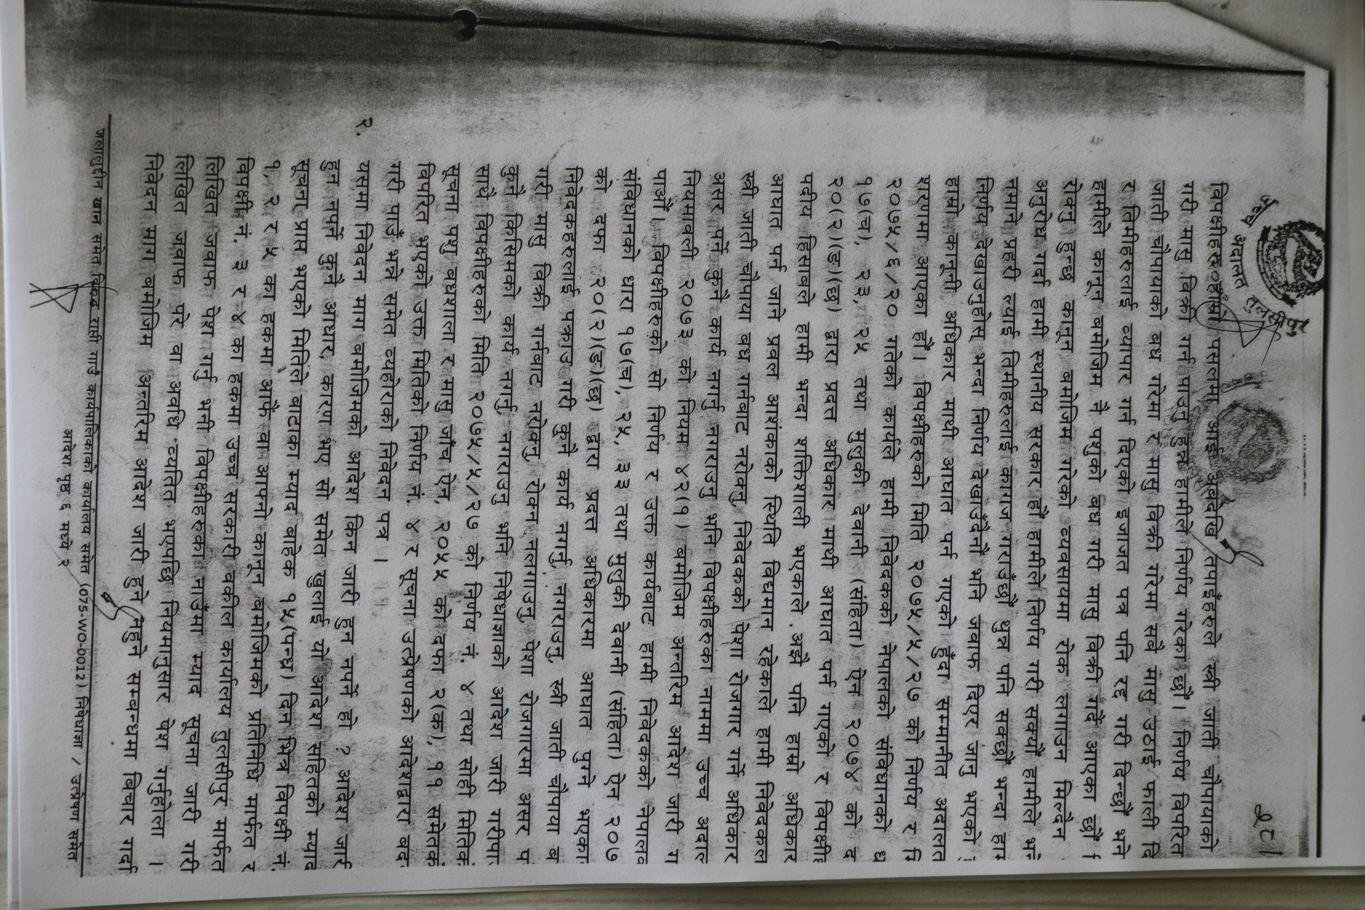 उच्च अदालत तुलसीपुर
विपक्षीहरु हाम्रो पसलमा आई अबदेखि तपाईंहरुले स्त्री जाती चौपायाको
गरी मासु विक्री गर्न पाउनु हुन्न हामीले निर्णय गरेका छौं। निर्णय विपरित
जाती चौपायाको बध गरेमा र मासु विक्री गरेमा सबै मासु उठाई फाली दि
र तिमीहरुलाई व्यापार गर्न दिएको इजाजत पत्र पनि रद्द गरी दिन्छौं भने
हामीले कानून बमोजिम नै पशुको बध गरी मासु विक्री गर्दै आएका छौं
रोक्नु हुन्छ कानून बमोजिम गरेको व्यवसायमा रोक लगाउन मिल्दैन
अनुरोध गर्दा हामी स्थानीय सरकार हौं हामीले निर्णय गरी सक्यौं हामीले भने
नमाने प्रहरी ल्याई तिमीहरुलाई कागज गराउंछौं थुन्न पनि सक्छौं भन्दा हाम
निर्णय देखाउनुहोस् भन्दा निर्णय देखाउंदैनौं भनि जवाफ दिएर जानु भएको
हाम्रो कानूनी अधिकार माथी आघात पर्न गएको हुँदा सम्मानीत अदालत
शरणमा आएका हौं। विपक्षीहरुको मिति २०७५/५/२७ को निर्णय र मि
२०७५/६/२० गतेको कार्यले हामी निवेदकको नेपालको संविधानको ध
१७(च), २३, २५ तथा मुलुकी देवानी (संहिता) ऐन २०७४ को द
२०(२)(ङ)(छ) द्वारा प्रदत्त अधिकार माथी आघात पर्न गएको र विपक्षीह
पदीय हिसावले हामी भन्दा शक्तिशाली भएकाले अझै पनि हाम्रो अधिकार
आघात पर्न जाने प्रवल आशंकाको स्थिति विद्यमान रहेकाले हामी निवेदकल
स्त्री जाती चौपाया बध गर्नबाट नरोक्नु, निवेदकको पेशा रोजगार गर्ने अधिकार
असर पर्ने कुनै कार्य नगर्नु नगराउनु भनि विपक्षीहरुका नाममा उच्च अदाल
नियमावली २०७३ को नियम ४२(१) बमोजिम अन्तरिम आदेश जारी ग
पाऔं। विपक्षीहरुको सो निर्णय र उक्त कार्यबाट हामी निवेदकको नेपालव
संविधानको धारा १७(च), २५, ३३ तथा मुलुकी देवानी (संहिता) ऐन २०७
को दफा २०(२)(ङ)(छ) द्वारा प्रदत्त अधिकारमा आघात पुग्ने भएका
निवेदकहरुलाई पक्राउ गरी कुनै कार्य नगर्नु, नगराउनु स्त्री जाती चौपाया ब
गरी मासु विक्री गर्नबाट नरोक्नु रोक्न नलगाउनु पेशा रोजगारमा असर प
कुनै किसिमको कार्य नगर्नु नगराउनु भनि निषेधाज्ञाको आदेश जारी गरीपा
साथै विपक्षीहरुको मिति २०७५/५/२७ को निर्णय नं. ४ तथा सोही मितिक
सूचना पशु बधशाला र मासु जाँच ऐन, २०५५ को दफा २(क), ११ समेतक
विपरित भएको उक्त मितिको निर्णय नं. ४ र सूचना उत्प्रेषणको आदेशद्वारा बद
गरी पाउं भन्ने समेत व्यहोराको निवेदन पत्र ।
२. यसमा निवेदन माग बमोजिमको आदेश किन जारी हुन नपर्ने हो ? आदेश जारी
हुन नपर्ने कुनै आधार, कारण भए सो समेत खुलाई यो आदेश सहितको म्याद
सूचना प्राप्त भएको मितिले बाटाका म्याद बाहेक १५(पन्ध्र) दिन भित्र विपक्षी नं.
१, २ र ५ का हकमा आफै वा आफ्नो कानून बमोजिमको प्रतिनिधि मार्फत र
विपक्षी नं. ३ र ४ का हकमा उच्च सरकारी वकील कार्यालय तुलसीपुर मार्फत
लिखित जवाफ पेश गर्नु भनी विपक्षीहरुका नाउंमा म्याद सूचना जारी गरी
लिखित जवाफ परे वा अवधि व्यतित भएपछि नियमानुसार पेश गर्नुहोला ।
निवेदन माग बमोजिम अन्तरिम आदेश जारी हुने नहुने सम्बन्धमा विचार गर्दा
जलालुद्दीन खान समेत विरुद्ध राप्ती गाउँ कार्यपालिकाको कार्यालय समेत (075-WO-0012) निषेधाज्ञा / उत्प्रेषण समेत
आदेश पृष्ठ ६ मध्ये २